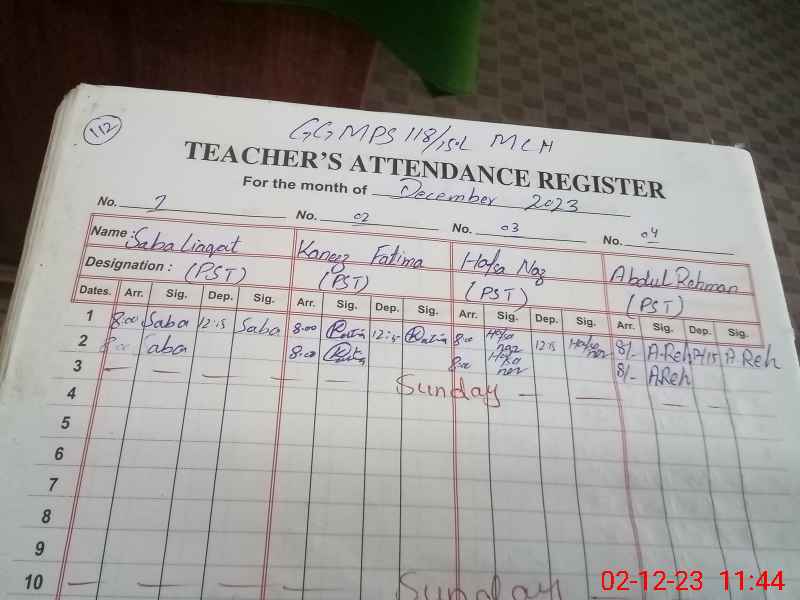 112
GGMPS 118/15-L MCH
TEACHER'S ATTENDANCE REGISTER
For the month of December 2023
No. 2 No. 02 No. 03 No. 04
Name: Saba Liaqat Kaneez Fatima Hafsa Naz Abdul Rehman
Designation: (PST) (PST) (PST) (PST)
Dates. Arr. Sig. Dep. Sig. Arr. Sig. Dep. Sig. Arr. Sig. Dep. Sig. Arr. Sig. Dep. Sig.
1 8:00 Saba 12:15 Saba 8:00 12:15 8:00 Hafsa naz 12:15 Hafsa naz 8/- A.Reh 12/15 A.Reh
2 8:00 Saba 8:00 8:00 Hafsa naz 8/- A.Reh
3 — — — — — Sunday — — — —
4
5
6
7
8
9
10 — — — — Sunday
02-12-23 11:44